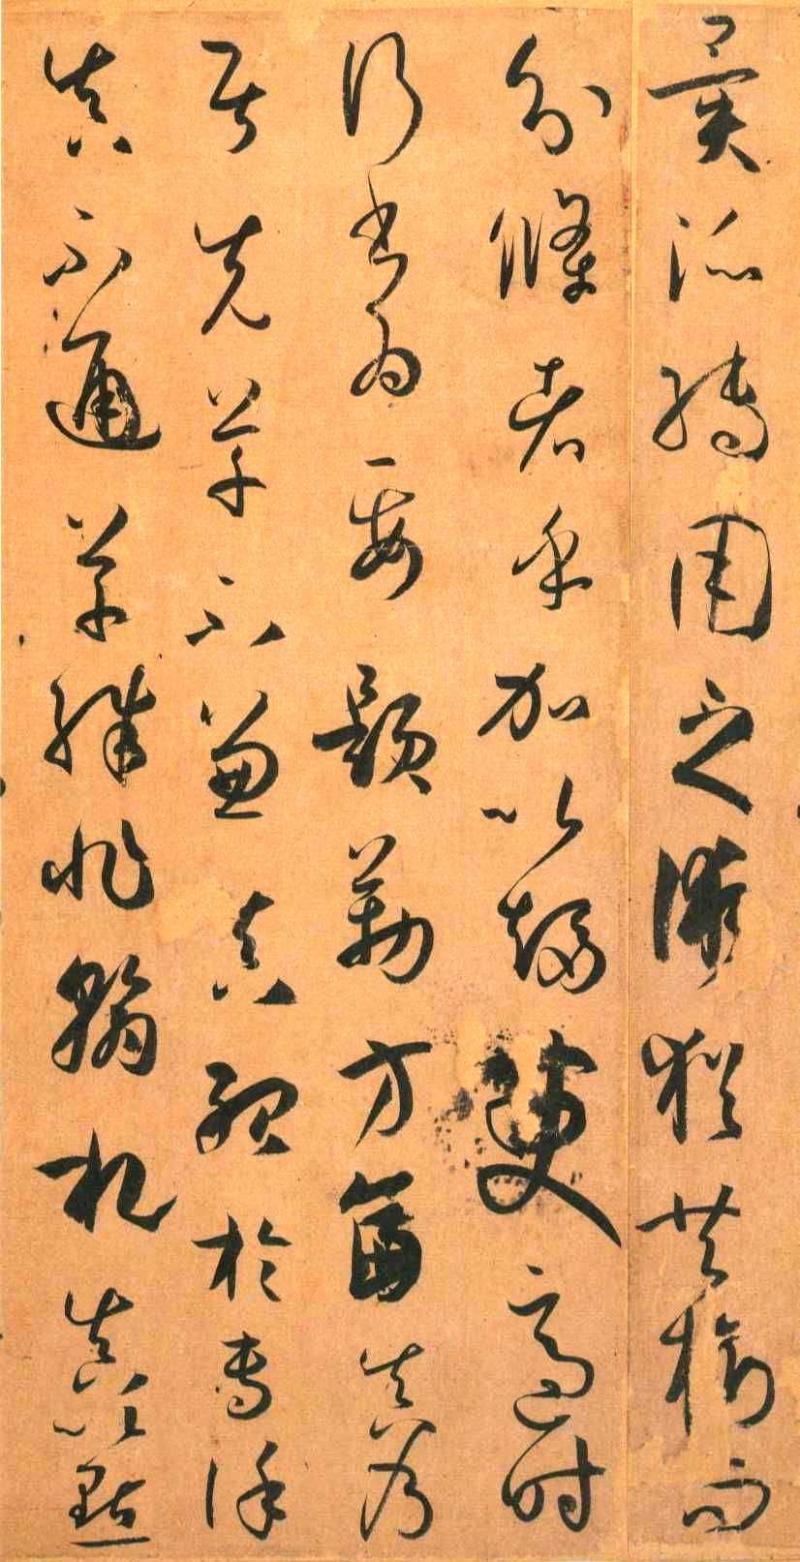 異派轉用之際猶共樹而
分條者乎加以趨變適時
行書為要題勒方畐真乃
居先草不兼真殆於專謹
真不通草殊非翰札真以點